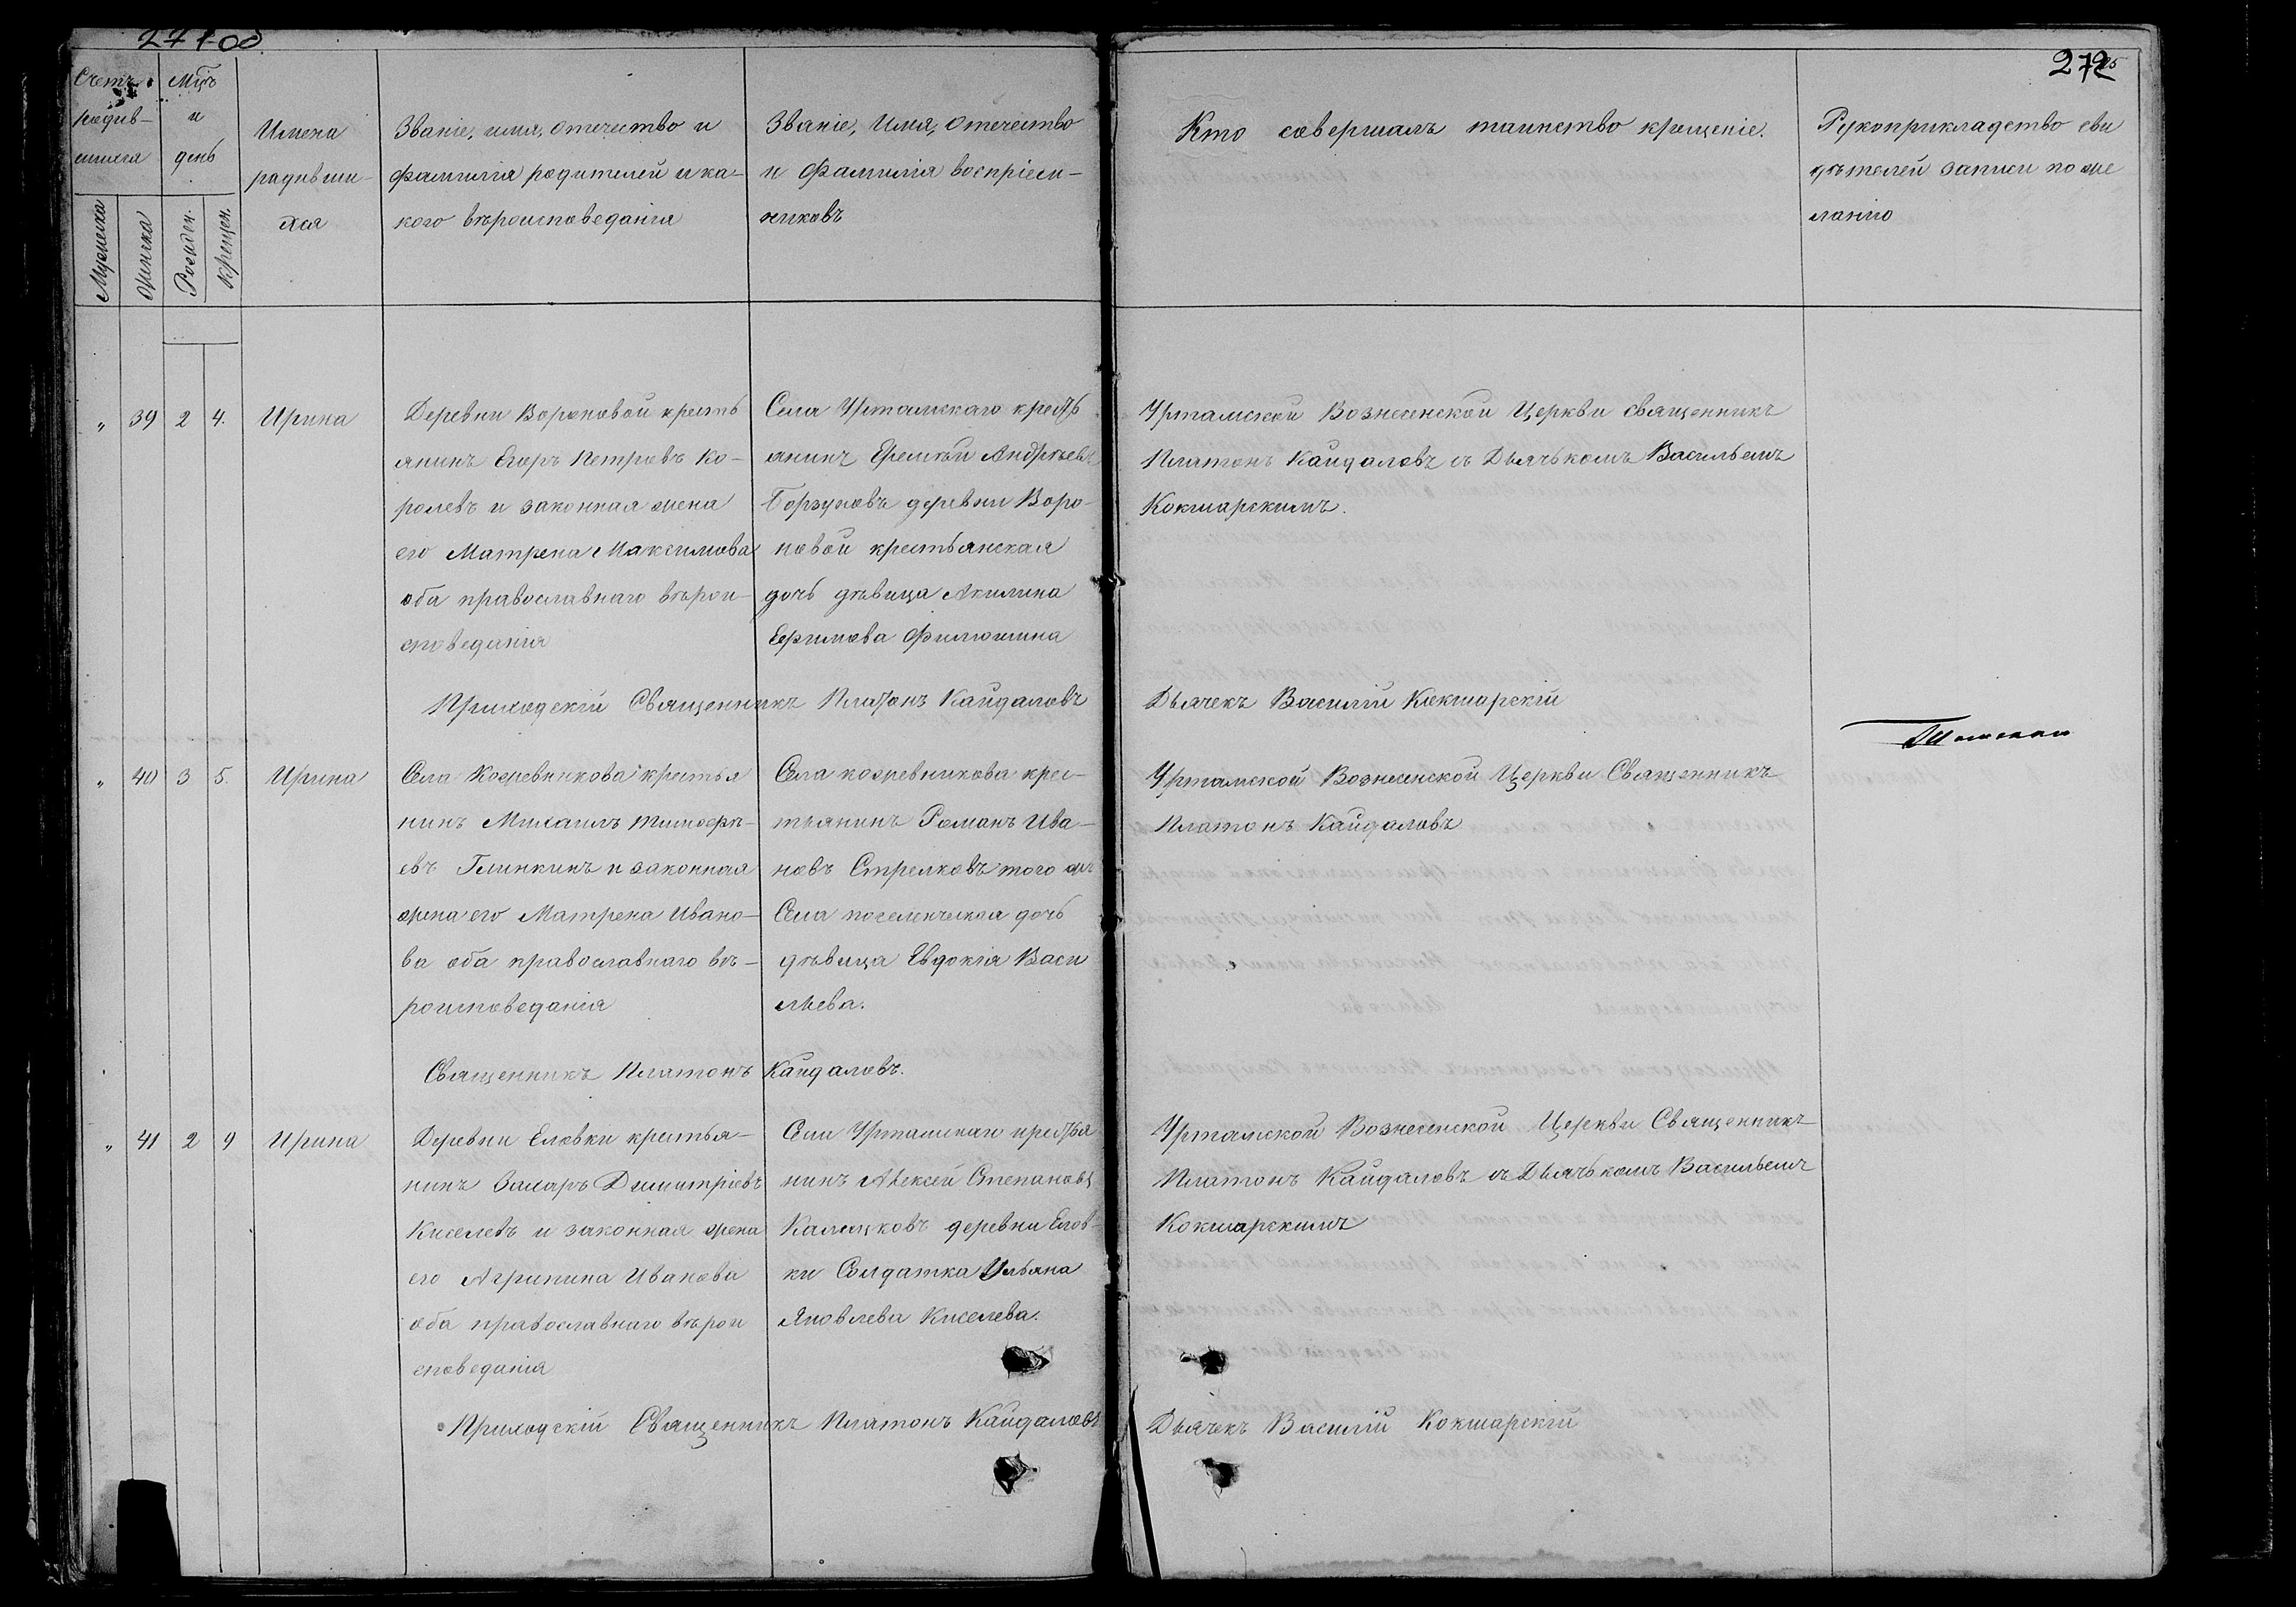 272
Счетъ
родив-
шихся
Мужеска
Женска
Мцъ
и
день
Рожден.
Крещен.
Имена
радивши-
хся
Званіе, имя, отечество и
фамилія родителей и ка-
кого вѣроисповеданія
Званіе, Имя, Отечество
и Фамилія воспріем-
никовъ
Кто совершалъ таинство крещеніе.
Рукоприкладство сви
дѣтелей записи по же
ланію
„ 39 2 4. Ирина
Деревни Вороновой кресть
янинъ Егоръ Петровъ Ко-
ролевъ и законная жена
его Матрена Максимова
оба православнаго вѣрои-
споведанія
Села Уртамскаго кресть
янинъ Еремѣй Андрѣевъ
Борзуновъ деревни Воро-
новой крестьянская
дочь дѣвица Акилина
Ефимова Филюшина
Уртамской Вознесенской Церкви священникъ
Платонъ Кайдаловъ съ Дьячькомъ Васильемъ
Кокшарскимъ.
Приходскій Священникъ Платонъ Кайдаловъ
Дьячекъ Василій Кокшарскій
„ 40 3 5. Ирина
Села Кожевникова крестья
нинъ Михаилъ Тимофѣ-
евъ Глинкинъ и законная
жена его Матрена Ивано-
ва оба православнаго вѣ-
роисповеданія
Села кожевникова крес-
тьянинъ Романъ Ива-
новъ Стрелковъ того же
Села поселенческая дочь
дѣвица Евдокія Васи
льева.
Уртамской Вознесенской Церкви Священникъ
Платонъ Кайдаловъ
Священникъ Платонъ Кайдаловъ.
„ 41 2 9 Ирина
Деревни Еловки крестья-
нинъ Захаръ Димитріевъ
Киселевъ и законная жена
его Агрипина Иванова
оба православнаго вѣрои
споведанія
Села Уртамскаго крестья
нинъ Алексей Степановъ
деревни Елов-
ки Солдатка Ульяна
Яковлева Киселева.
Уртамской Вознесенской Церкви Священникъ
Платонъ Кайдаловъ съ Дьячькомъ Васильемъ
Кокшарскимъ
Приходскій Священникъ Платонъ Кайдаловъ
Дьячекъ Василій Кокшарскій